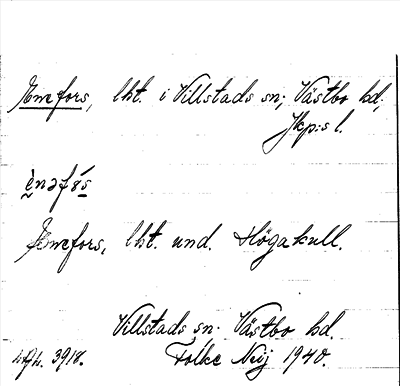 Ennefors, lht. i Villstads sn; Västbo hd;
Jkp:s l.
Ennefors, lht. und. Högakull.
Villstads sn. Västbo hd.
Folke 1940.
3918.